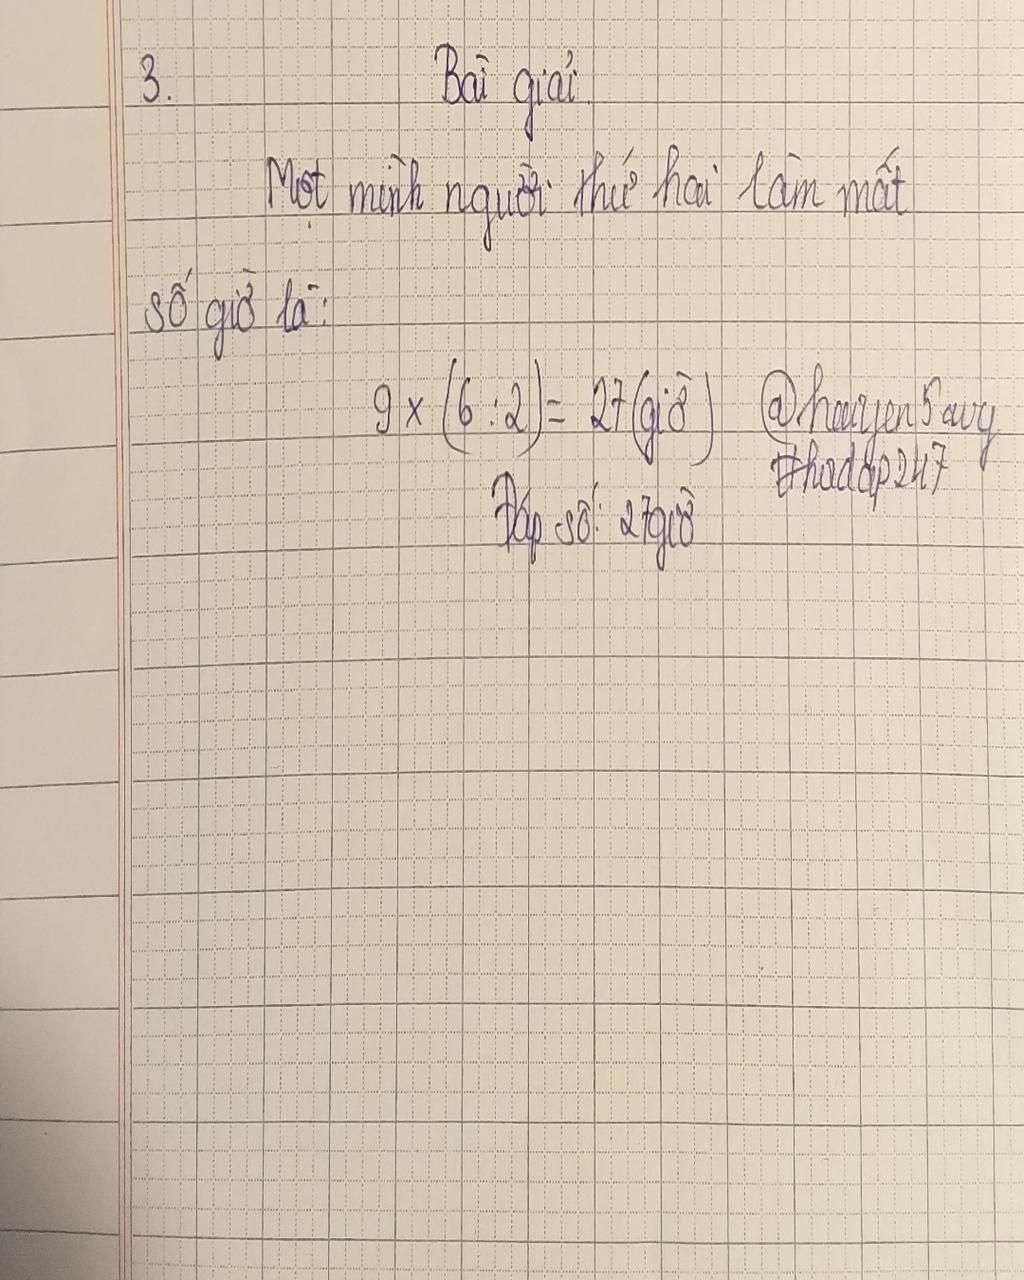 3. Bài giải
Một mình người thứ hai làm mất
số giờ là:
9 x (6 : 2) = 27 (giờ)
Đáp số: 27 giờ
#hoidap247